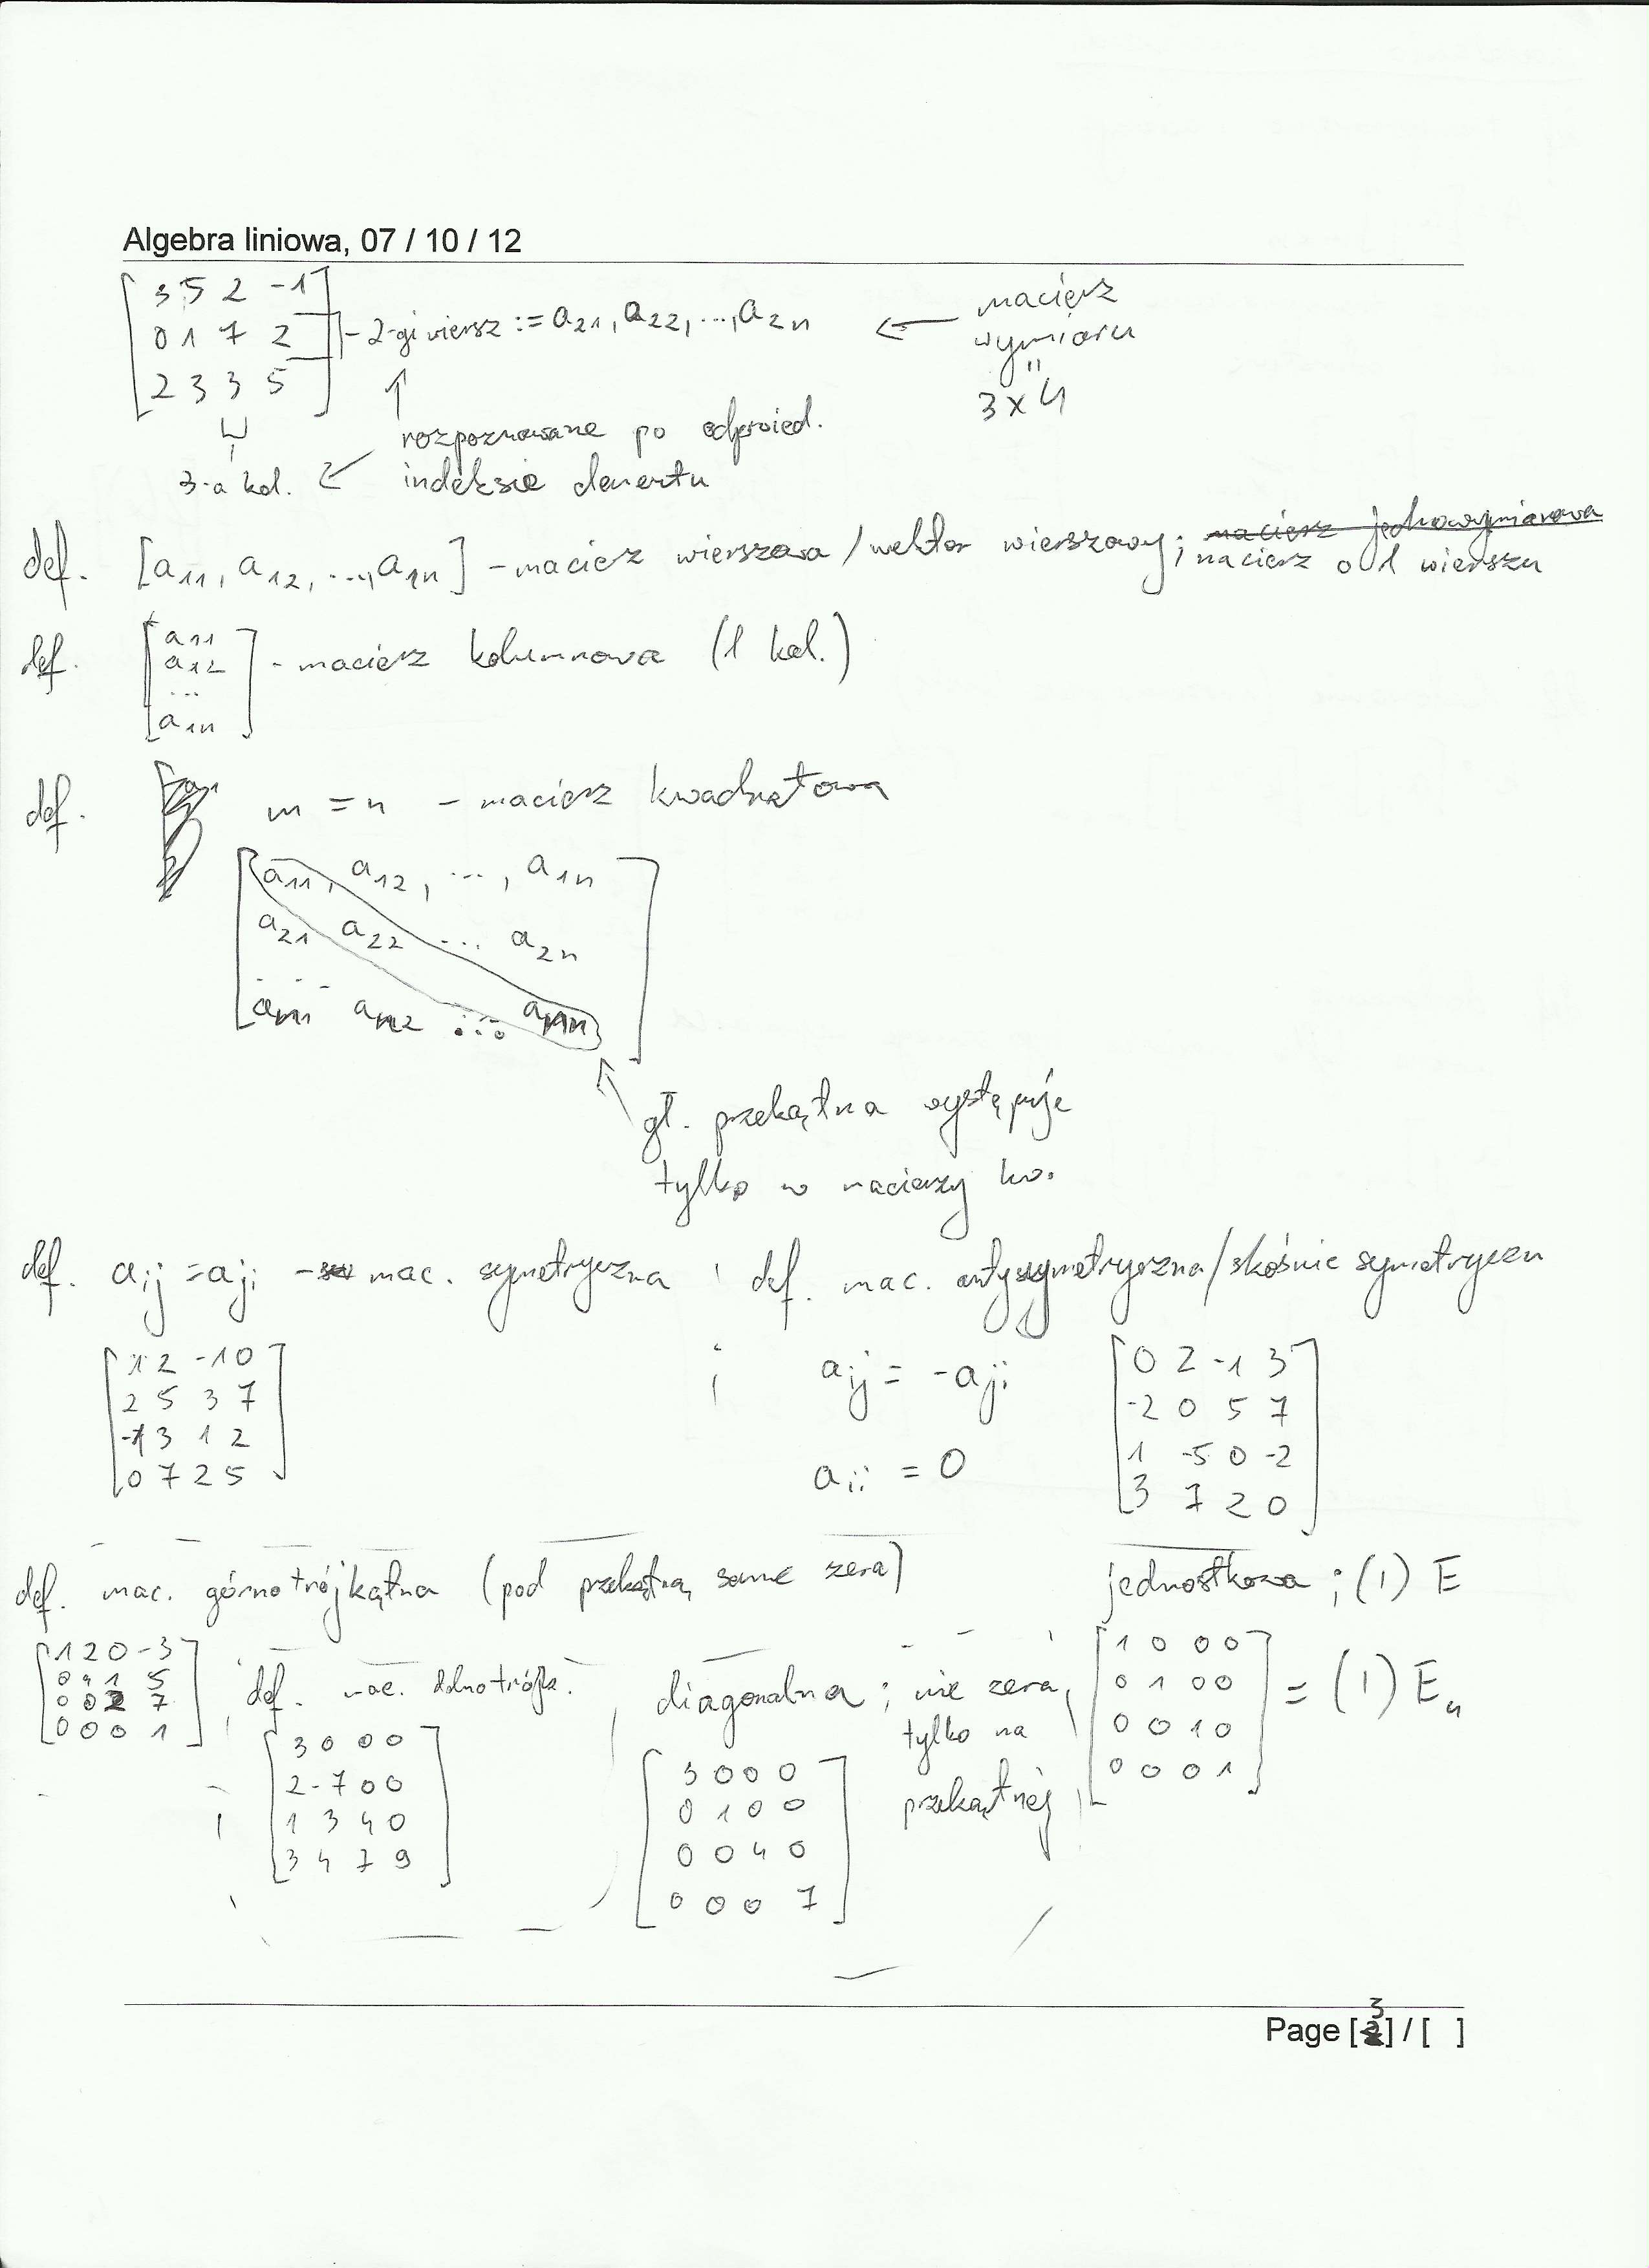 Algebra liniowa, 07 / 10 / 12
[3 5 2 -1
0 1 7 2
2 3 3 5]
- 2-gi wiersz := a21, a22, ..., a2n
← macierz
wymiaru
3 x 4
rozpoznawane po odpowied.
3-a kol. ← indeksie elementu
def. [a11, a12, ..., a1n] - macierz wierszowa / wektor wierszowy; macierz jednowymiarowa
macierz o 1 wierszu
def. [a11
a12
...
a1n] - macierz kolumnowa (1 kol.)
def. m = n - macierz kwadratowa
[a11, a12, ..., a1n
a21 a22 ... a2n
. . .
an1 an2 ... ann]
gł. przekątna występuje
tylko w macierzy kw.
def. aij = aji - mac. symetryczna ; def. mac. antysymetryczna/skośnie symetryczn
[1 2 -1 0
2 5 3 7
-1 3 1 2
0 7 2 5]
aij = -aji
aii = 0
[0 2 -1 3
-2 0 5 7
1 -5 0 -2
3 7 2 0]
def. mac. górnotrójkątna (pod przekątną same zera)
[1 2 0 -3
0 4 1 5
0 0 2 7
0 0 0 1]
def. mac. dolnotrójk.
[3 0 0 0
2 -7 0 0
1 3 4 0
3 4 7 9]
diagonalna; nie zera
tylko na
przekątnej
[3 0 0 0
0 1 0 0
0 0 4 0
0 0 0 7]
jednostkowa ; (1) E
[1 0 0 0
0 1 0 0
0 0 1 0
0 0 0 1] = (1) En
Page [3] / [ ]